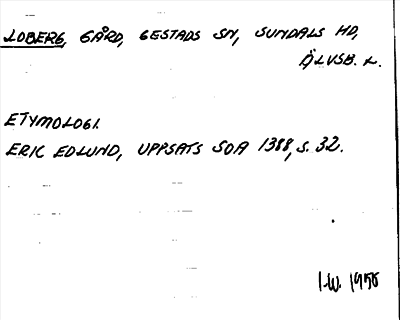 LOBERG, GÅRD, GESTADS SN, SUNDALS HD,
ÄLVSB. L.
ETYMOLOGI.
ERIC EDLUND, UPPSATS SOA 1388, S. 32.
I.W. 1958